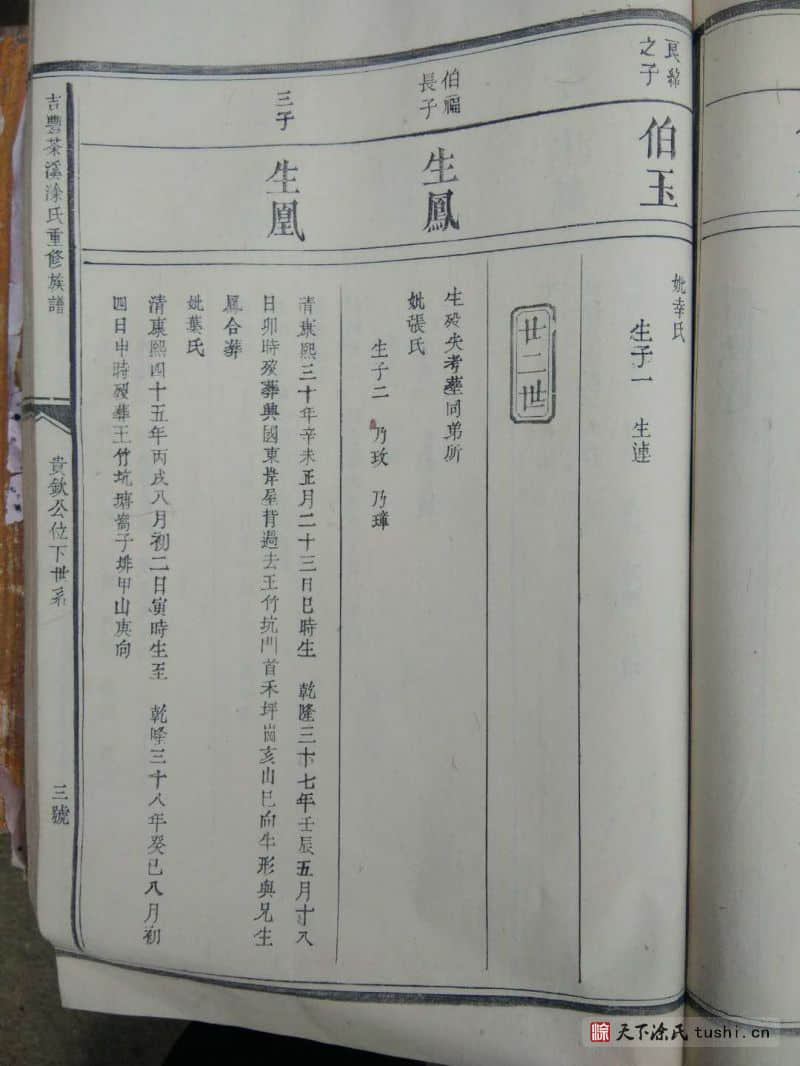 良綿
之子
伯玉
妣幸氏
生子一 生連
廿二世
伯福
長子
生鳳
生殁失考葬同弟所
妣張氏
生子二 乃玫 乃璋
三子
生凰
清康熙三十年辛未正月二十三日巳時生 乾隆三十七年壬辰五月十八
日卯時殁葬興國東韋屋背過去王竹坑門首禾坪崗亥山巳向牛形與兄生
鳳合葬
妣葉氏
清康熙四十五年丙戌八月初二日寅時生至 乾隆三十八年癸巳八月初
四日申時殁葬王竹坑塘窩子排甲山庚向
吉豐茶溪涂氏重修族譜
貴欽公位下世系
三號
涂 天下涂氏 tushi.cn